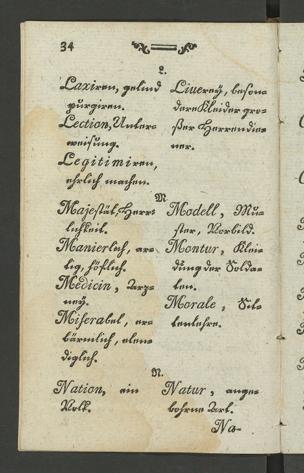 34
L.
Laxiren, gelind
purgiren.
Lection, Unter-
weisung.
Legitimiren,
ehrlich machen.
Liverey, beson-
dere Kleider gro-
ßer Herren die-
ner.
M.
Majestät, Herr-
lichkeit.
Manierlich, ar-
tig, höflich.
Medicin, Arze-
ney.
Miserabel, er-
bärmlich, elen-
diglich.
Modell, Mu-
ster, Vorbild.
Montur, Klei-
dung der Solda-
ten.
Morale, Sit-
tenlehre.
N.
Nation, ein
Volk.
Natur, ange-
bohrne Art.
Na-